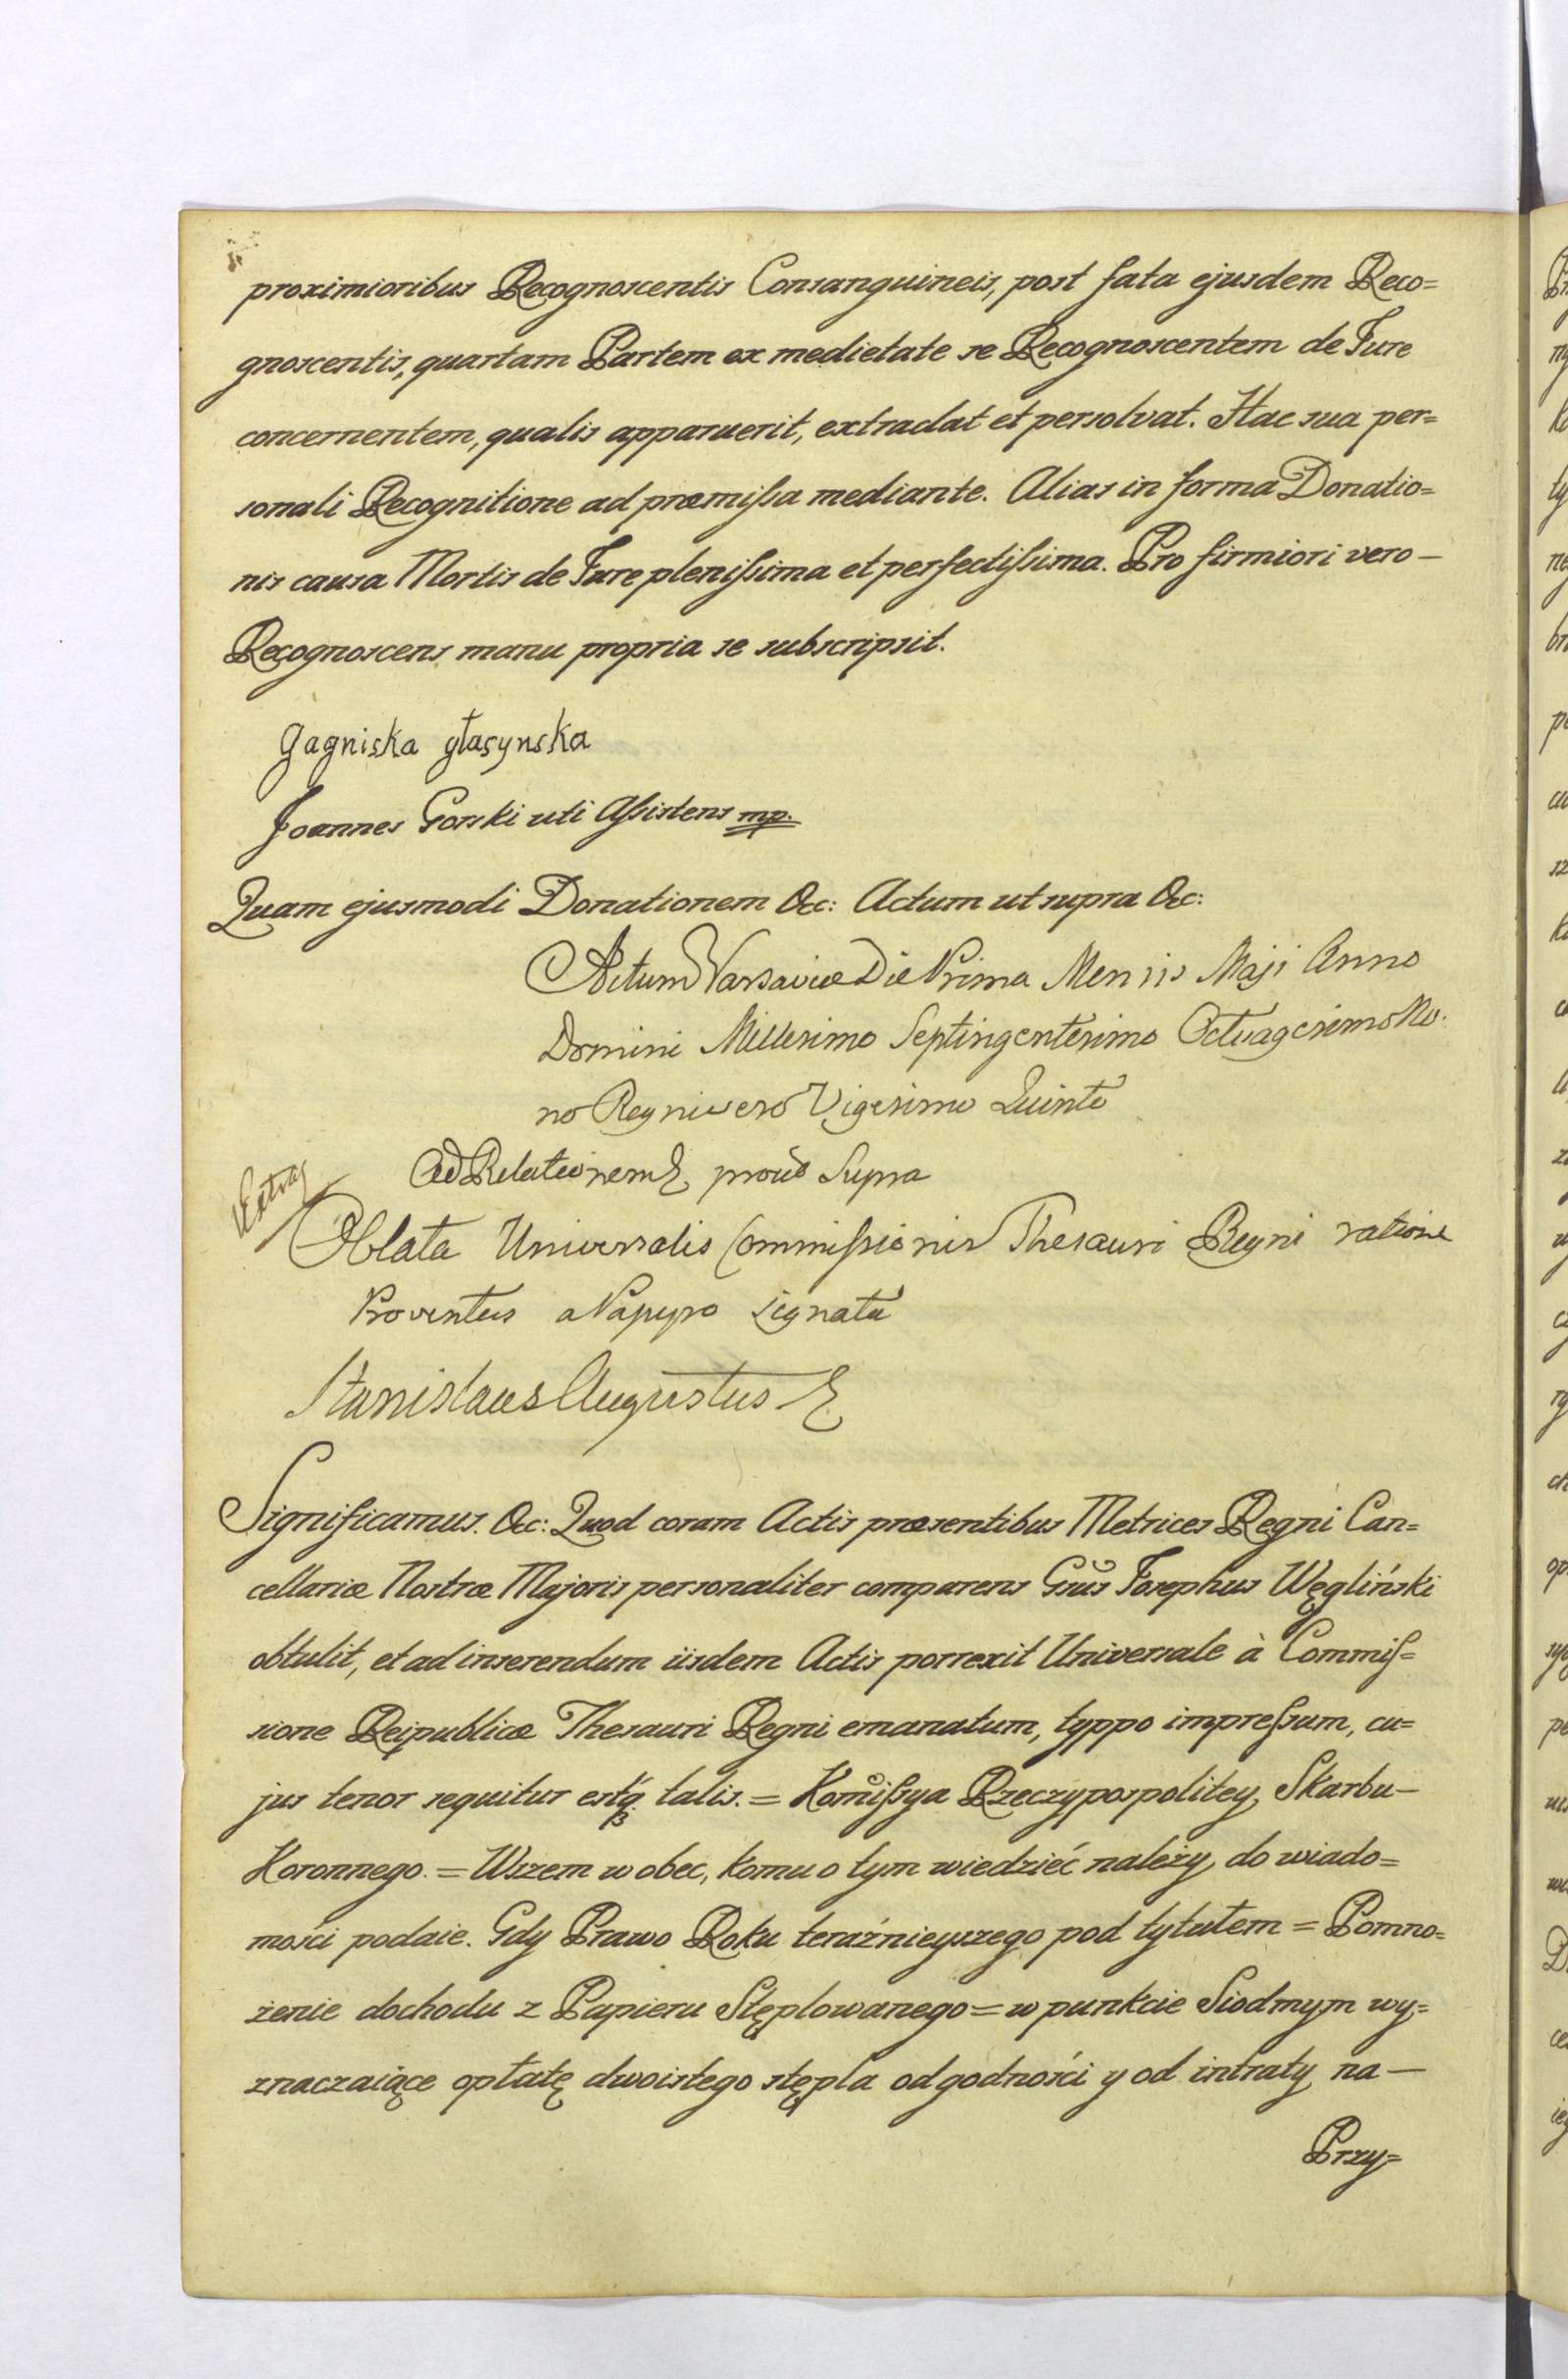 proximioribus Recognoscentis Consanguineis, post fata ejusdem Reco=
gnoscentis, quartam Partem ex medietate se Recognoscentem de Jure
concernentem, qualis apparuerit, extradat et persolvat. Hac sua per=
sonali Recognitione ad præmißa mediante. Alias in forma Donatio=
nis causa Mortis de Jure plenißima et perfectißima. Pro firmiori vero —
Recognoscens manu propria se subscripsit.
gagniska głasynska
Joannes Gorski uti Aßistens mp.
Quam ejusmodi Donationem &c: Actum ut supra &c:
Actum Varsaviæ Die Prima Mensis Maji Anno
Domini Millesimo Septingentesimo Octuagesimo No.
no Regni vero Vigesimo Quinto
Ad Relationem prout Supra
Extrad
Oblata Universalis Commißionis Thesauri Regni ratione
Proventus a Papyro signata
Stanislaus Augustus
Significamus. &c: Quod coram Actis præsentibus Metrices Regni Can=
cellariæ Nostræ Majoris personaliter comparens Gsus Josephus Węgliński
obtulit, et ad inserendum iisdem Actis porrexit Universale à Commis=
sione Reipublicæ Thesauri Regni emanatum, typpo impreßum, cu=
jus tenor sequitur estq talis. = Komißya Rzeczypospolitey Skarbu —
Koronnego. = Wszem w obec, komu o tym wiedzieć należy, do wiado=
mości podaie. Gdy Prawo Roku teraźnieyszego pod tytułem = Pomno=
żenie dochodu z Papieru Stęplowanego = w punkcie Siodmym wy=
znaczaiące opłatę dwoistego stępla od godności y od intraty na —
Przy=